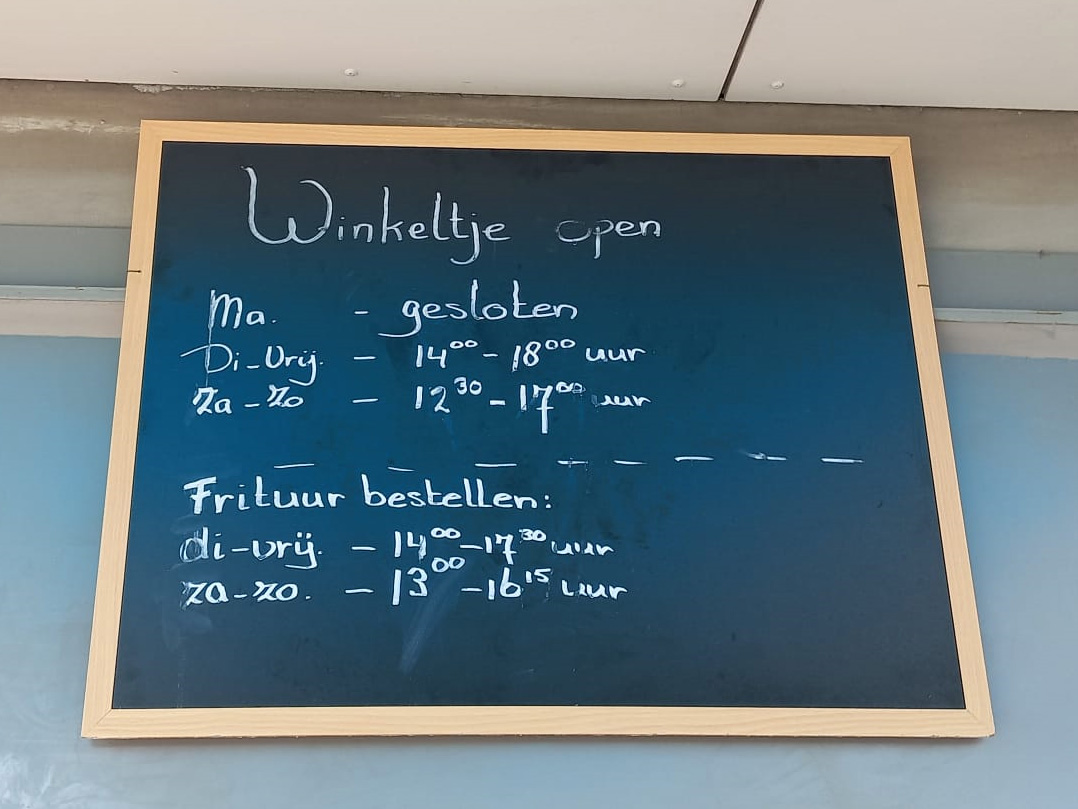 Winkeltje open
Ma. - gesloten
Di-Vrij. - 14⁰⁰ - 18⁰⁰ uur
Za - Zo - 12³⁰ - 17⁰⁰ uur
Frituur bestellen:
di-vrij. - 14⁰⁰ - 17³⁰ uur
za-zo. - 13⁰⁰ - 16¹⁵ uur